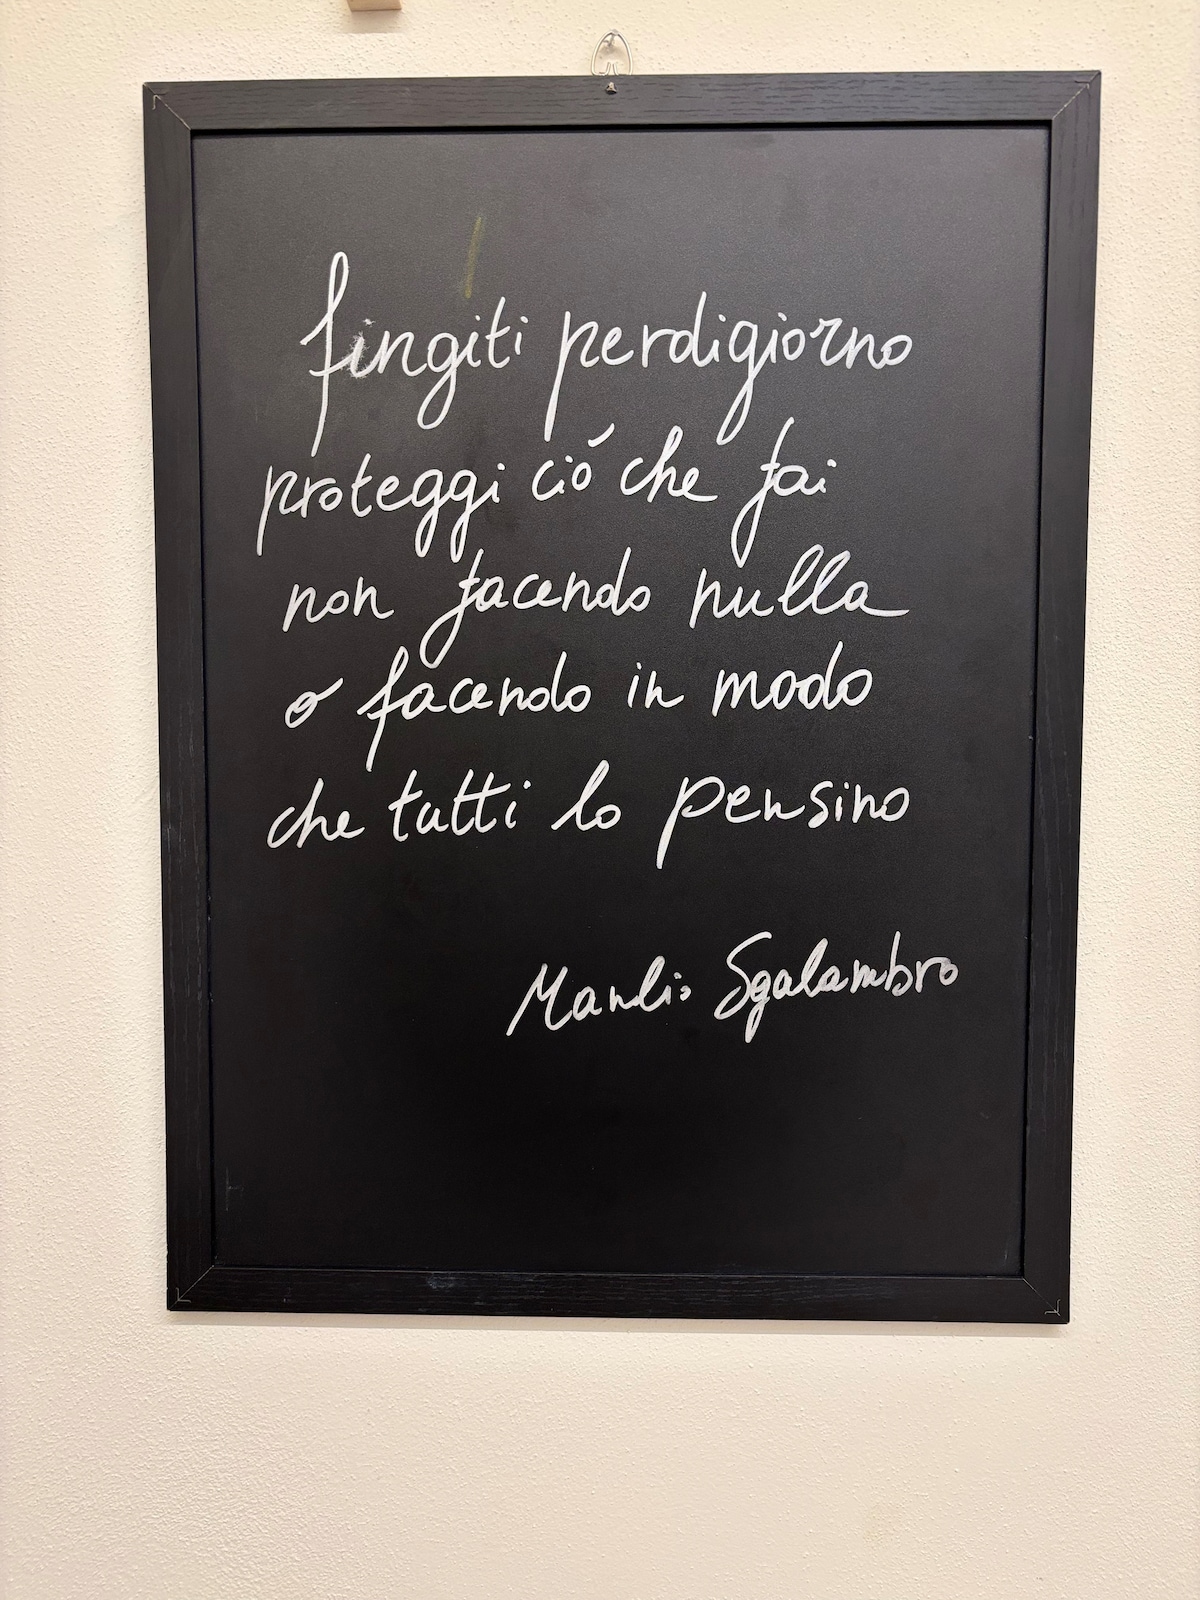 fingiti perdigiorno
proteggi ció che fai
non facendo nulla
o facendo in modo
che tutti lo pensino
Manlio Sgalambro